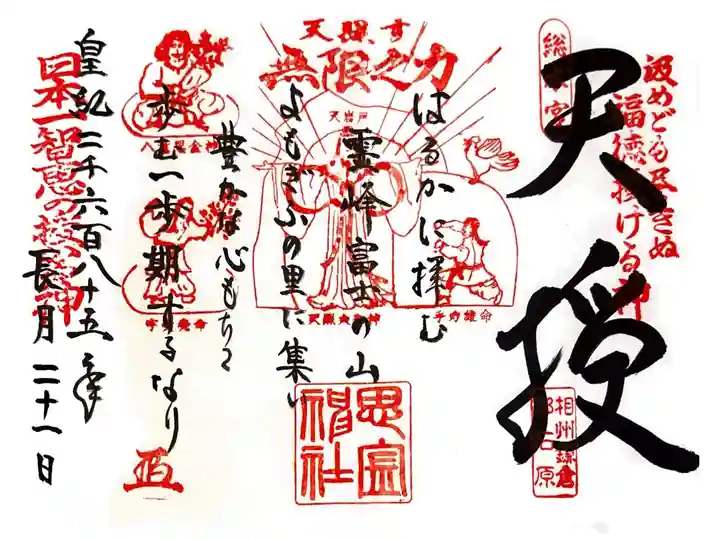 天授
汲めども尽きぬ
福徳授ける神
相州鎌倉
天照す
無限之力
天岩戸
天照大御神
手力雄命
はるかに拝む
霊峰富士の山
よもぎふの里に集い
豊かな心もちて
歩む一歩期するなり
思金神社
日本一智恵の授け神
皇紀二千六百八十五年
長月二十一日